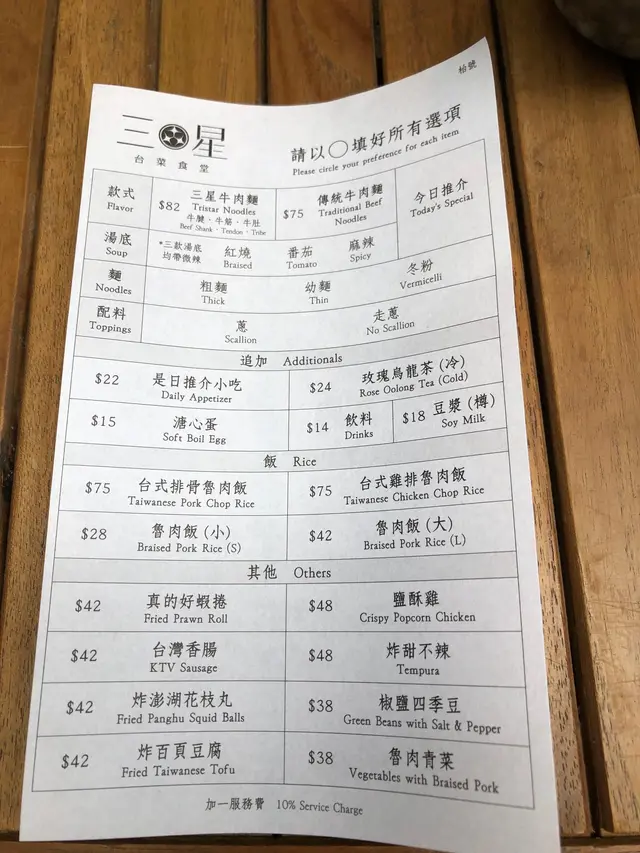 枱號
三星
台菜食堂
請以〇填好所有選項
Please circle your preference for each item
款式
Flavor
$82 三星牛肉麵
Tristar Noodles
牛腱・牛筋・牛肚
Beef Shank・Tendon・Tribe
$75 傳統牛肉麵
Traditional Beef
Noodles
今日推介
Today's Special
湯底
Soup
*三款湯底
均帶微辣
紅燒
Braised
番茄
Tomato
麻辣
Spicy
麵
Noodles
粗麵
Thick
幼麵
Thin
冬粉
Vermicelli
配料
Toppings
蔥
Scallion
走蔥
No Scallion
追加 Additionals
$22 是日推介小吃
Daily Appetizer
$24 玫瑰烏龍茶 (冷)
Rose Oolong Tea (Cold)
$15 溏心蛋
Soft Boil Egg
$14 飲料
Drinks
$18 豆漿 (樽)
Soy Milk
飯 Rice
$75 台式排骨魯肉飯
Taiwanese Pork Chop Rice
$75 台式雞排魯肉飯
Taiwanese Chicken Chop Rice
$28 魯肉飯 (小)
Braised Pork Rice (S)
$42 魯肉飯 (大)
Braised Pork Rice (L)
其他 Others
$42 真的好蝦捲
Fried Prawn Roll
$48 鹽酥雞
Crispy Popcorn Chicken
$42 台灣香腸
KTV Sausage
$48 炸甜不辣
Tempura
$42 炸澎湖花枝丸
Fried Panghu Squid Balls
$38 椒鹽四季豆
Green Beans with Salt & Pepper
$42 炸百頁豆腐
Fried Taiwanese Tofu
$38 魯肉青菜
Vegetables with Braised Pork
加一服務費 10% Service Charge